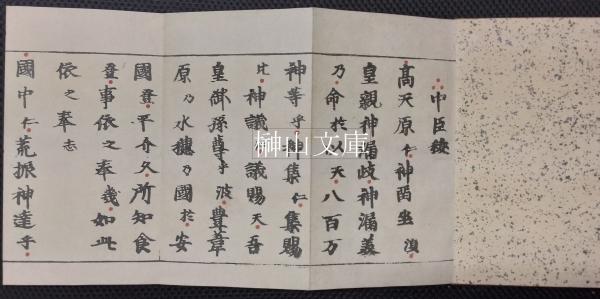 中臣祓
高天原仁神留坐須
皇親神漏岐神漏義
乃命於以天八百万
神等乎神集仁集賜
比神議仁議賜天吾
皇御孫尊乎波豊葦
原乃水穂乃國於安
國登平介久所知食
登事依之奉幾如此
依之奉志
國中仁荒振神達乎
榊山文庫